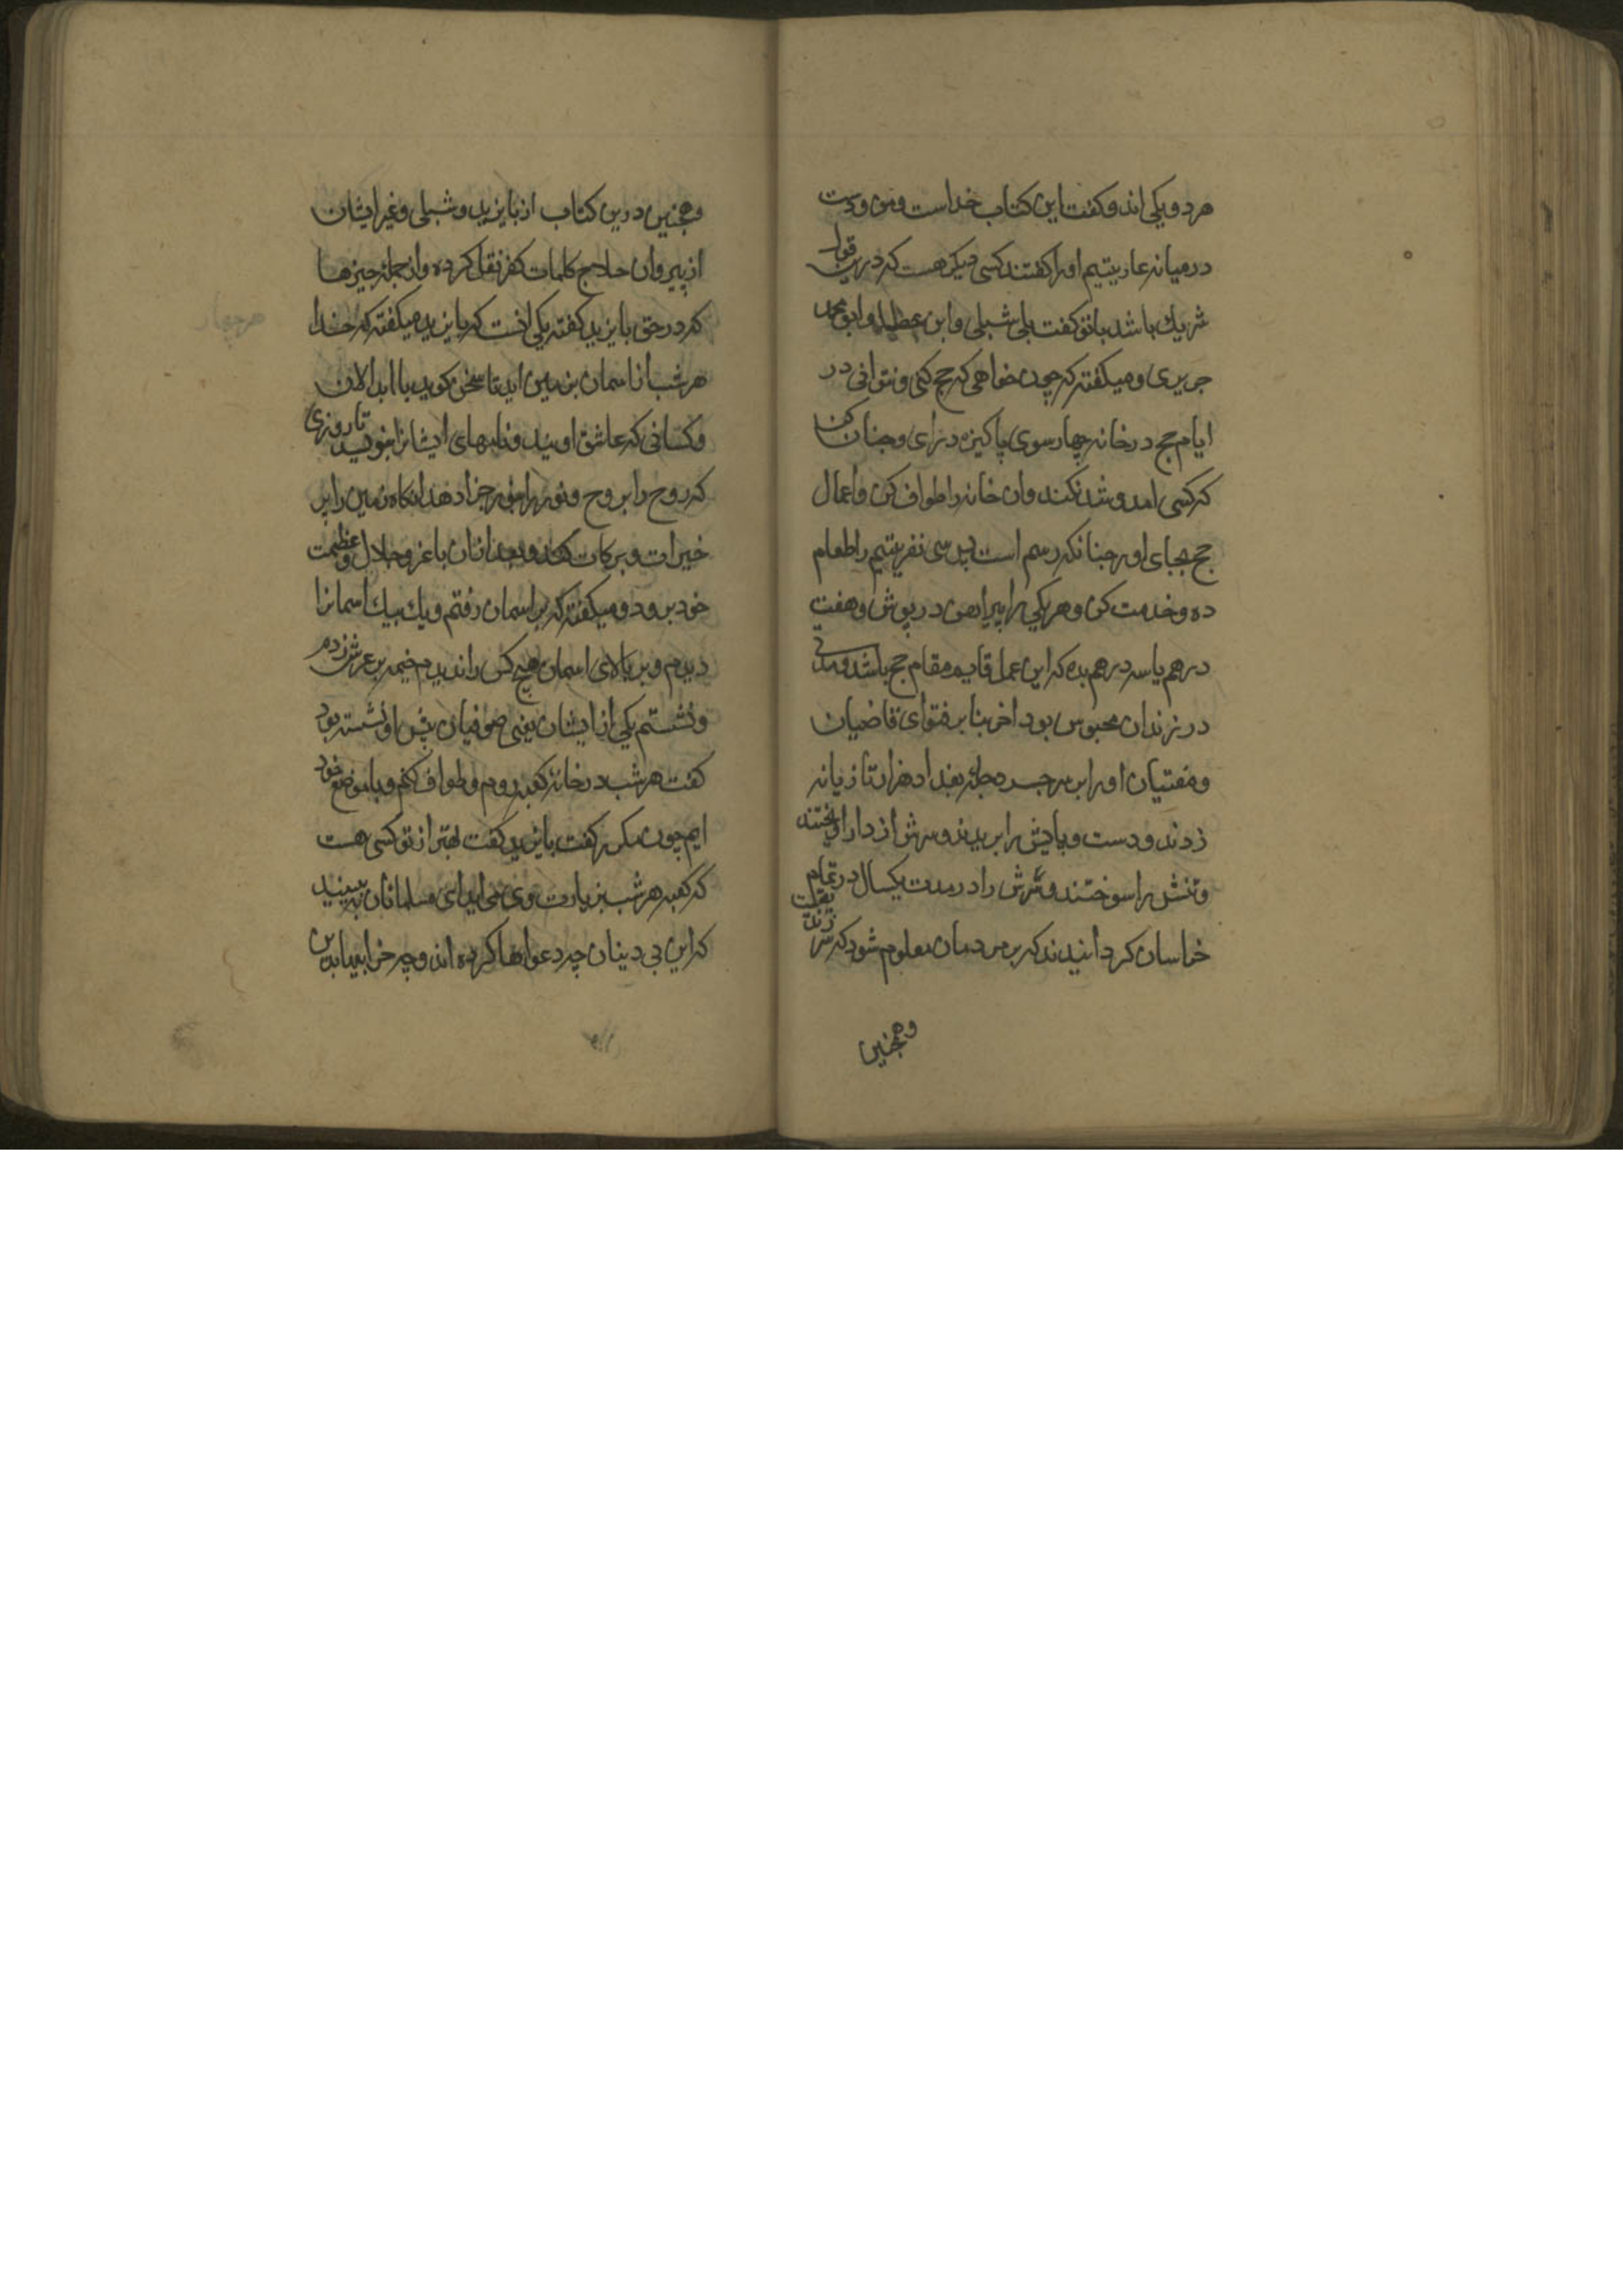 هر دو یکی اند و کفت این کتاب خداست ومن و دست
در میانه عاریتیم او را کفتند کسی دیکر هست که درین قول
شریک باشد با تو کفت بلی شبلی و ابن عطا و ابو محمد
جریری و میکفته که چون خواهی که حج کنی و نتوانی در
ایام حج در خانه چهارسوی پاکیزه درای و چنان کن
که کسی امد و شد نکند وان خانه را طواف کن و اعمال
حج بجای اور چنانکه رسم است پس سی نفر یتیم را طعام
ده و خدمت کن و هر یکی را پیراهن در پوش و هفت
درهم یا سه درهم بده که این عمل قایم مقام حج باشد و مدتی
در زندان محبوس بود اخر بنا بر فتوای قاضیان
و مفتیان او را بر سر جسر دجله بغداد هزار تازیانه
زدند و دست و پایش را بریدند و سرش از دار اویختند
و تنش را سوختند و سرش را در مدت یکسال در تمام
خراسان کردانیدند که بر مردمان معلوم شود که سر
وهمچنین
وهمچنین درین کتاب از بایزید و شبلی و غیر ایشان
از پیروان حلاج کلمات کفر نقل کرده و از جمله چیزها
که در حق بایزید کفته یکی انست که بایزید میکفته که خدا
هر شب از اسمان بزمین اید تا سخن کوید با ابدالان
و کسانی که عاشق اویند و نامهای ایشانرا بنویسد تا روزی
که روح را بروح و نور را بنور جزا دهد انکاه زمین را پر
خیرات و برکات کند و بعد ازان با عز و جلال و عظمت
خود برود و میکفته که بر اسمان رفتم و یک بیک اسمانرا
دیدم و بر بالای اسمان هیچ کس را ندیدم خیمه بر عرش زدم
و نشستم یکی از ایشان یعنی صوفیان پیش او نشسته بود
کفت هر شب در خانه کعبه روم و طواف کنم و با موضع خود
ایم چون مکرر کفت بایزید کفت بهتر از تو کسی هست
که کعبه هر شب بزیارت وی می اید ای مسلمانان ببینید
که این بی دینان چه دعواها کرده اند و چه خرابیها بدین